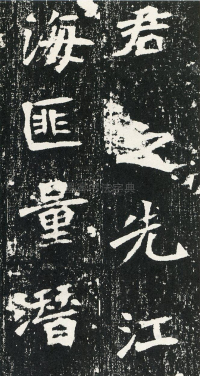 君之先江
海匪量潛